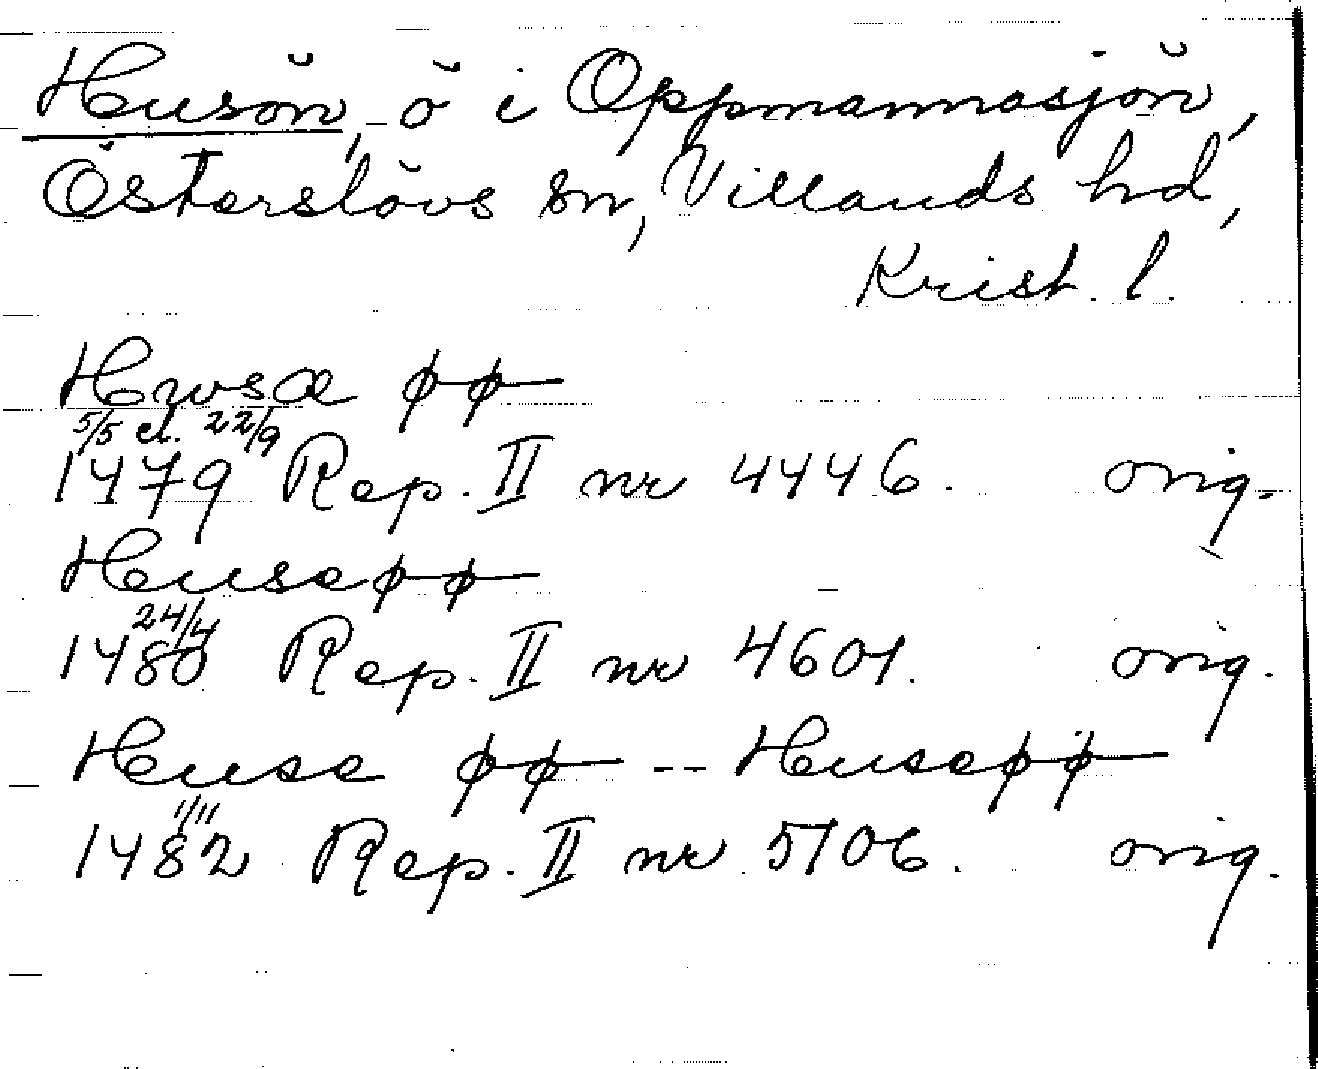 Husön, ö i Oppmannasjön,
Österslövs sn, Villands hd,
Krist. l.
Hwsæ øø
5/5 el. 22/9
1479 Rep. II nr 4446. orig.
Huseøø
24/4
1480 Rep. II nr 4601. orig.
Huse øø -- Huseøø
1/11
1482 Rep. II nr 5106. orig.